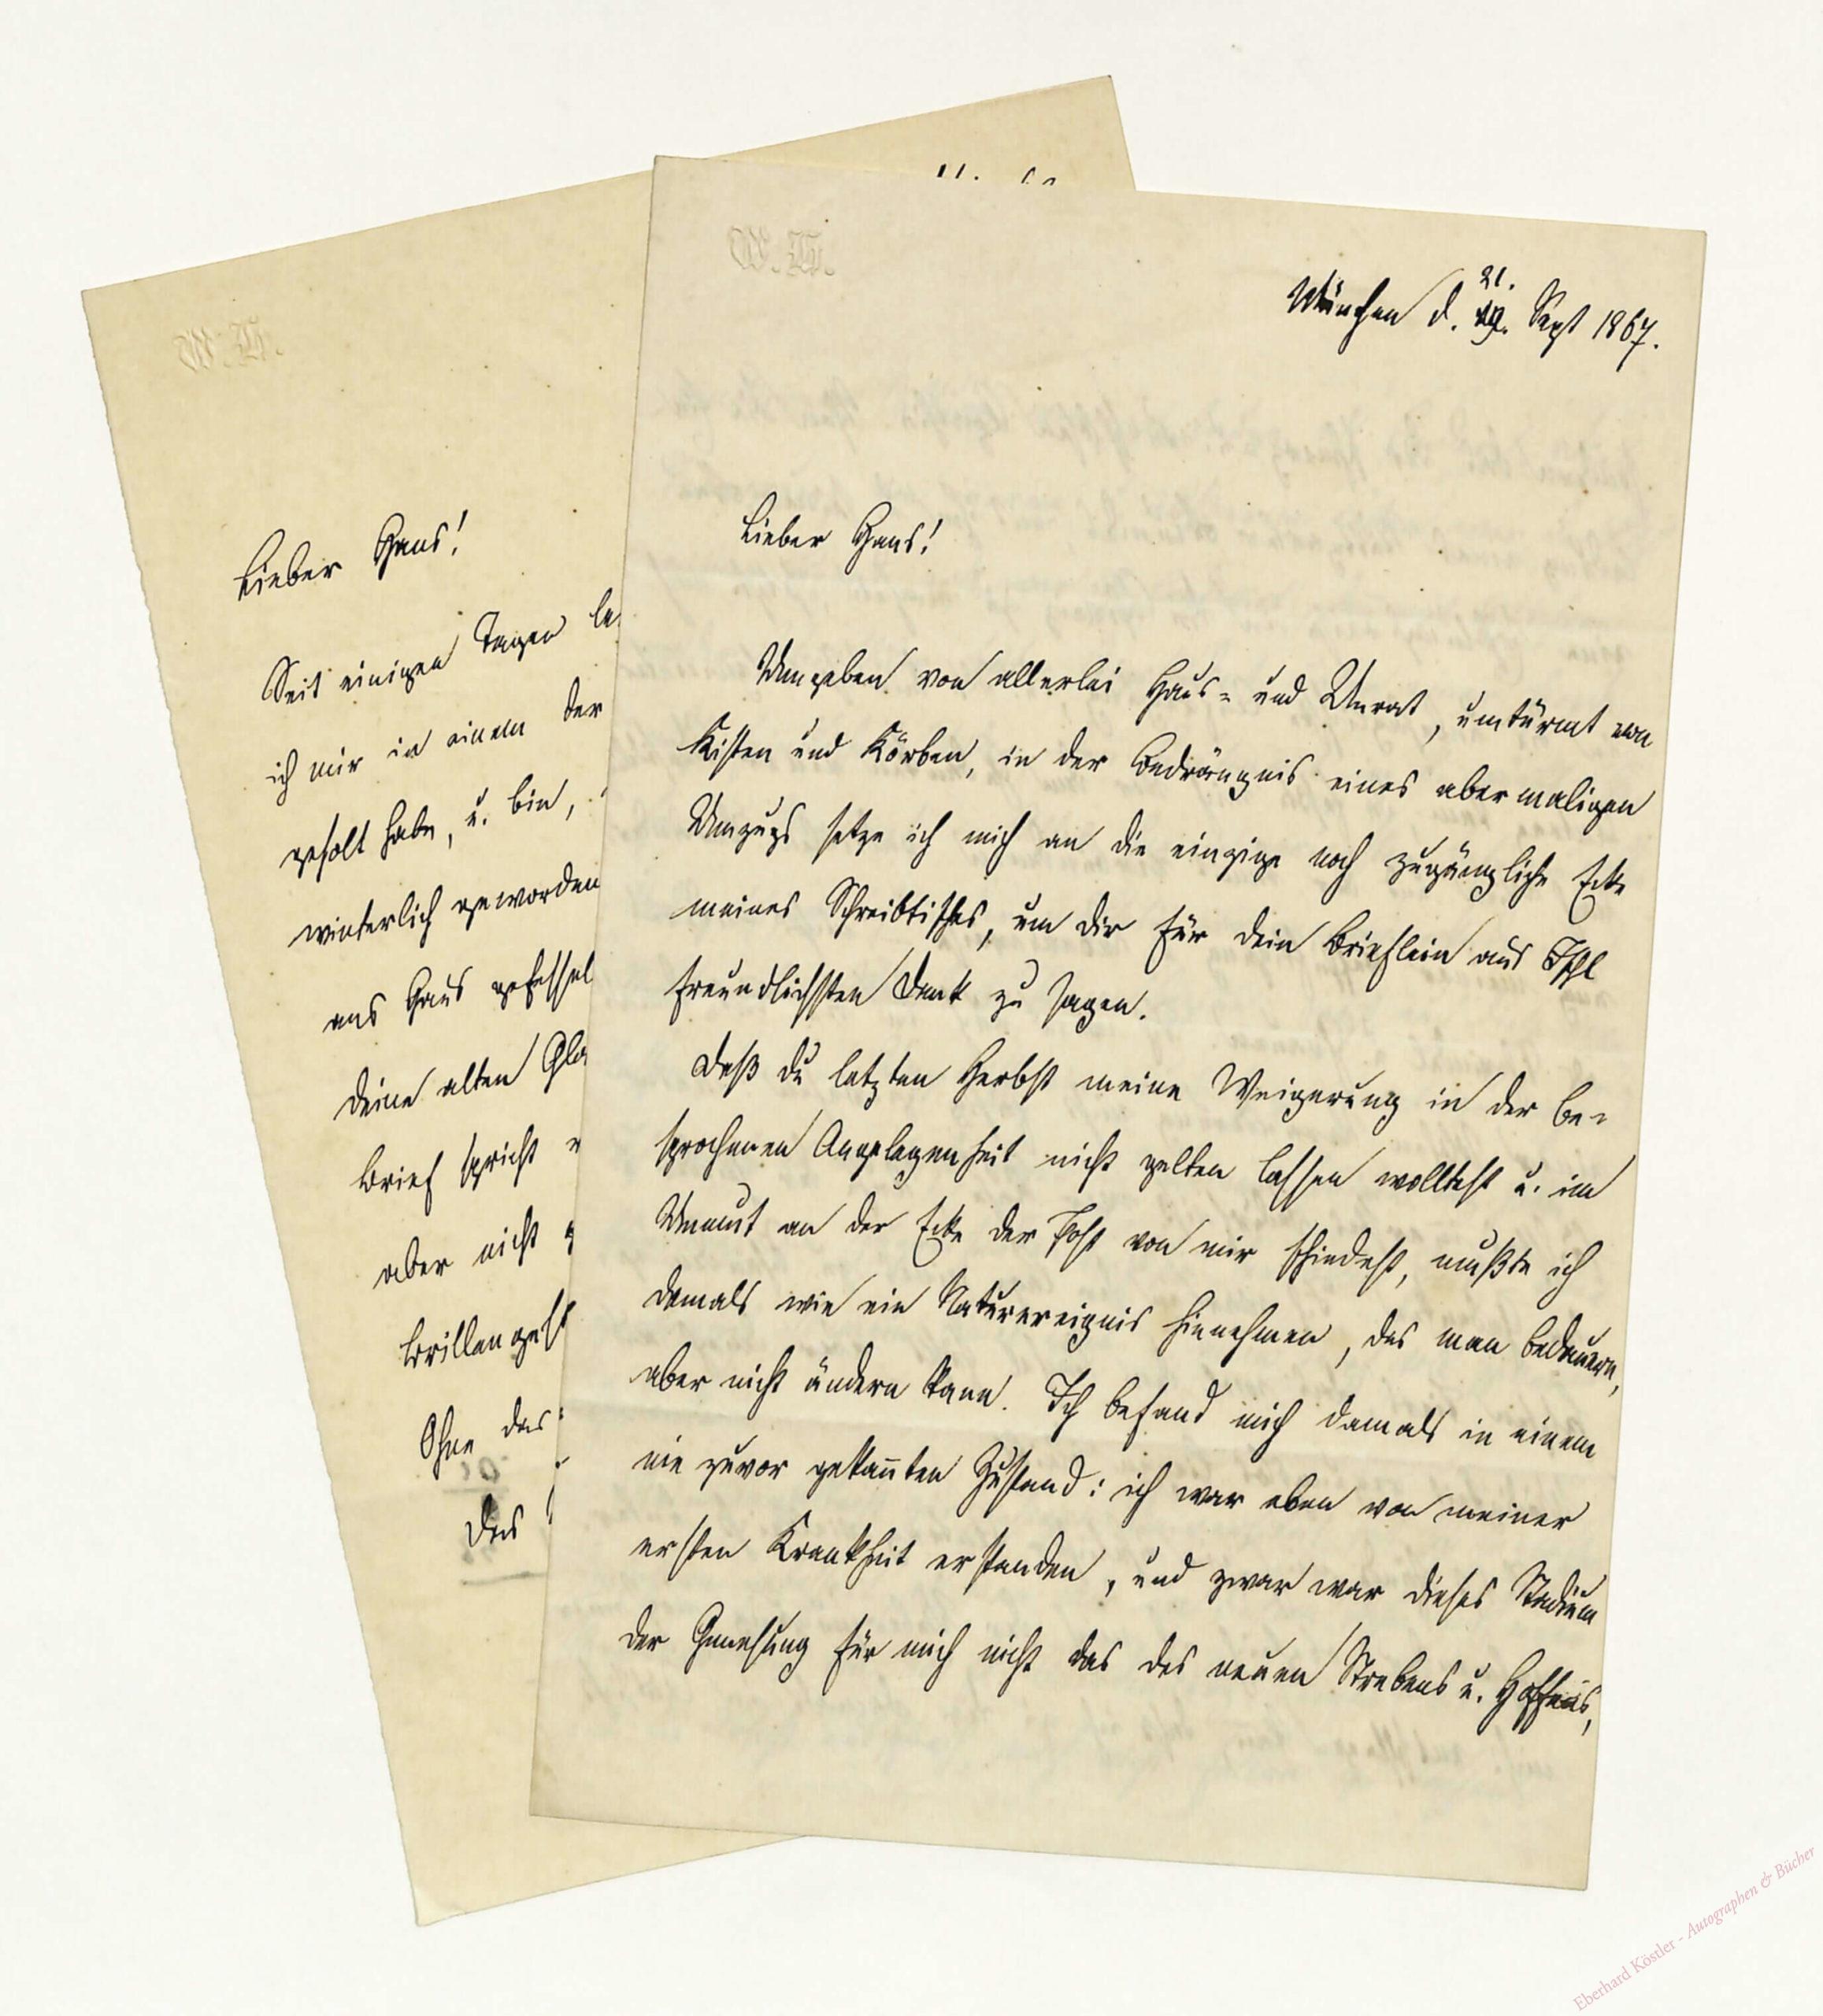 W. H.
Lieber Hans!
Seit einigen Tagen
ich mir in einem der
geholt habe, u. bin,
winterlich geworden
ans Haus gefessel
Deine alten
Brief spricht
aber nicht
Brillengest
Ohne das
Das
W. H.
21.
München d. 19. Sept 1867.
Lieber Hans!
Umgeben von allerlei Haus- und Unrat, umtürmt von
Kisten und Körben, in der Bedrängnis eines abermaligen
Umzugs setze ich mich an die einzige noch zugängliche Ecke
meines Schreibtisches, um dir für dein Brieflein aus Ischl
freundlichsten Dank zu sagen.
Daß du letzten Herbst meine Weigerung in der be-
sprochenen Angelegenheit nicht gelten lassen wolltest u. im
Unmut an der Ecke der Post von mir schiedest, mußte ich
damals wie ein Naturereignis hinnehmen, das man bedauern,
aber nicht ändern kann. Ich befand mich damals in einem
nie zuvor gekannten Zustand: ich war eben von meiner
ersten Krankheit erstanden, und zwar war dieses Stadium
der Genesung für mich nicht das des neuen Strebens u. Hoffens,
Eberhard Köstler - Autographen & Bücher